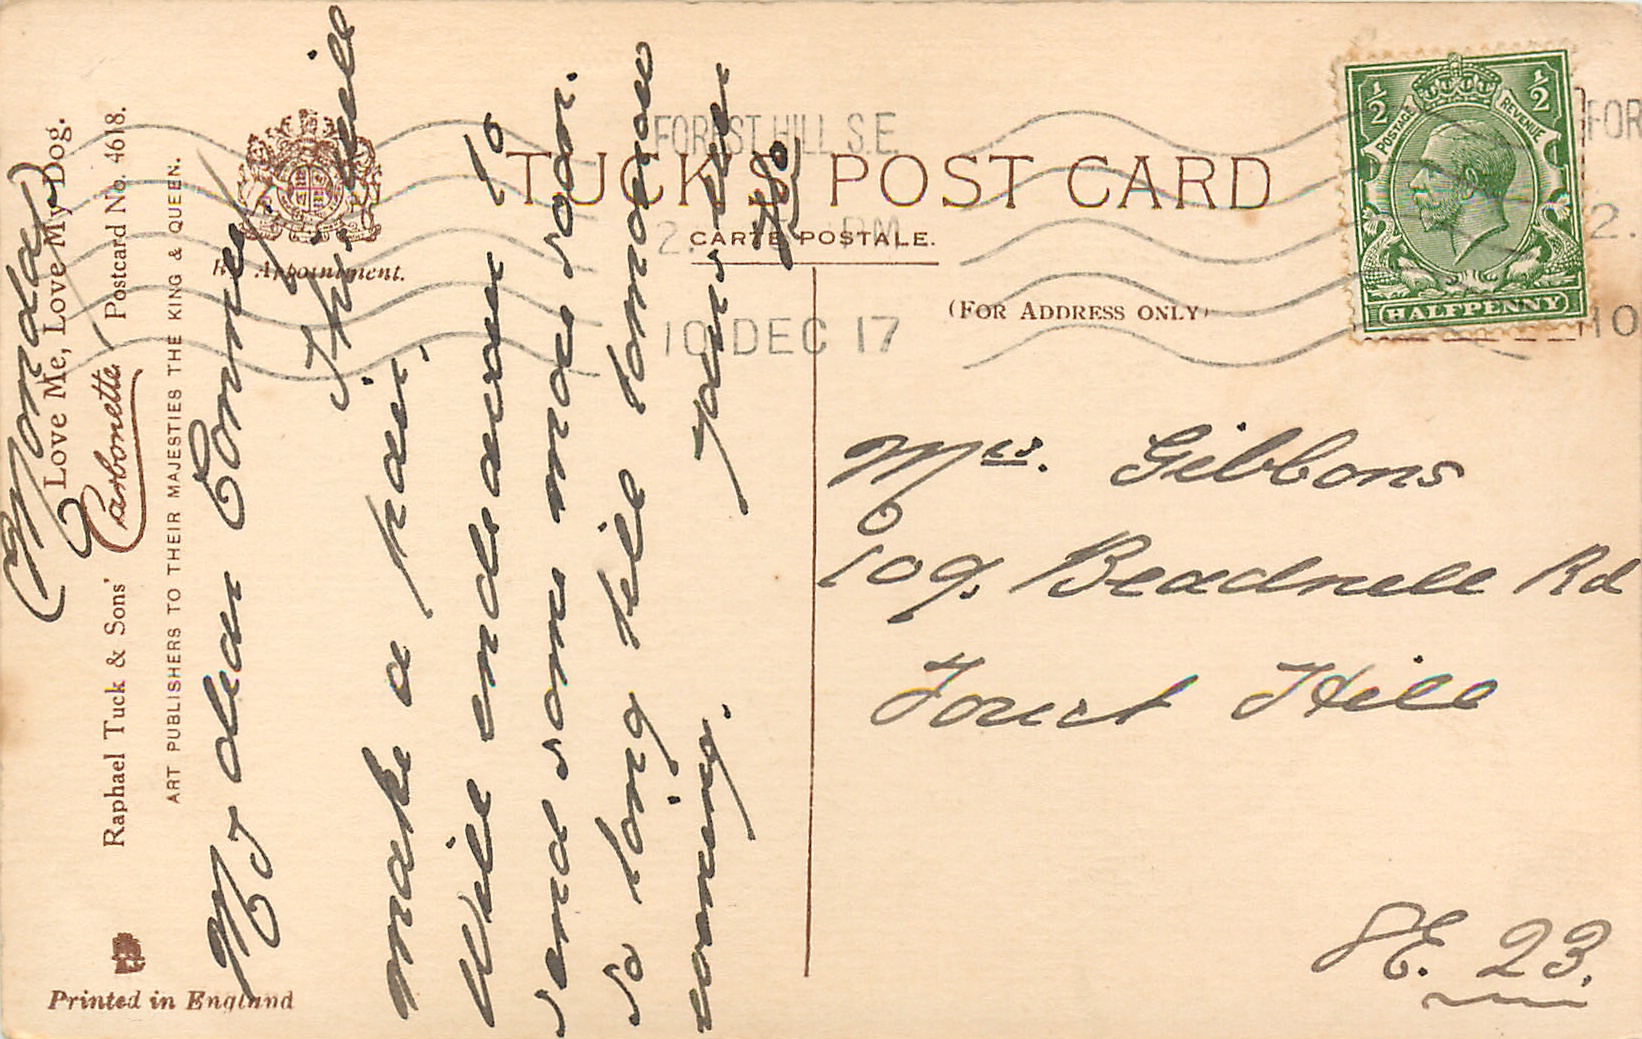 (Monday)
My dear Connie
This will
make a pair.
Will endeavour to
send some more soon.
So long till tomorrow
evening.
Yours ever
Love Me, Love My Dog.
Raphael Tuck & Sons' "Carbonette" Postcard No. 4618.
ART PUBLISHERS TO THEIR MAJESTIES THE KING & QUEEN.
By Appointment.
Printed in England
TUCK'S POST CARD
CARTE POSTALE.
(FOR ADDRESS ONLY)
FOREST HILL S.E.
2. PM
10 DEC 17
FOR
2.
10
POSTAGE REVENUE
½ ½
HALFPENNY
Mrs. Gibbons
109. Beadnell Rd
Forest Hill
SE. 23.